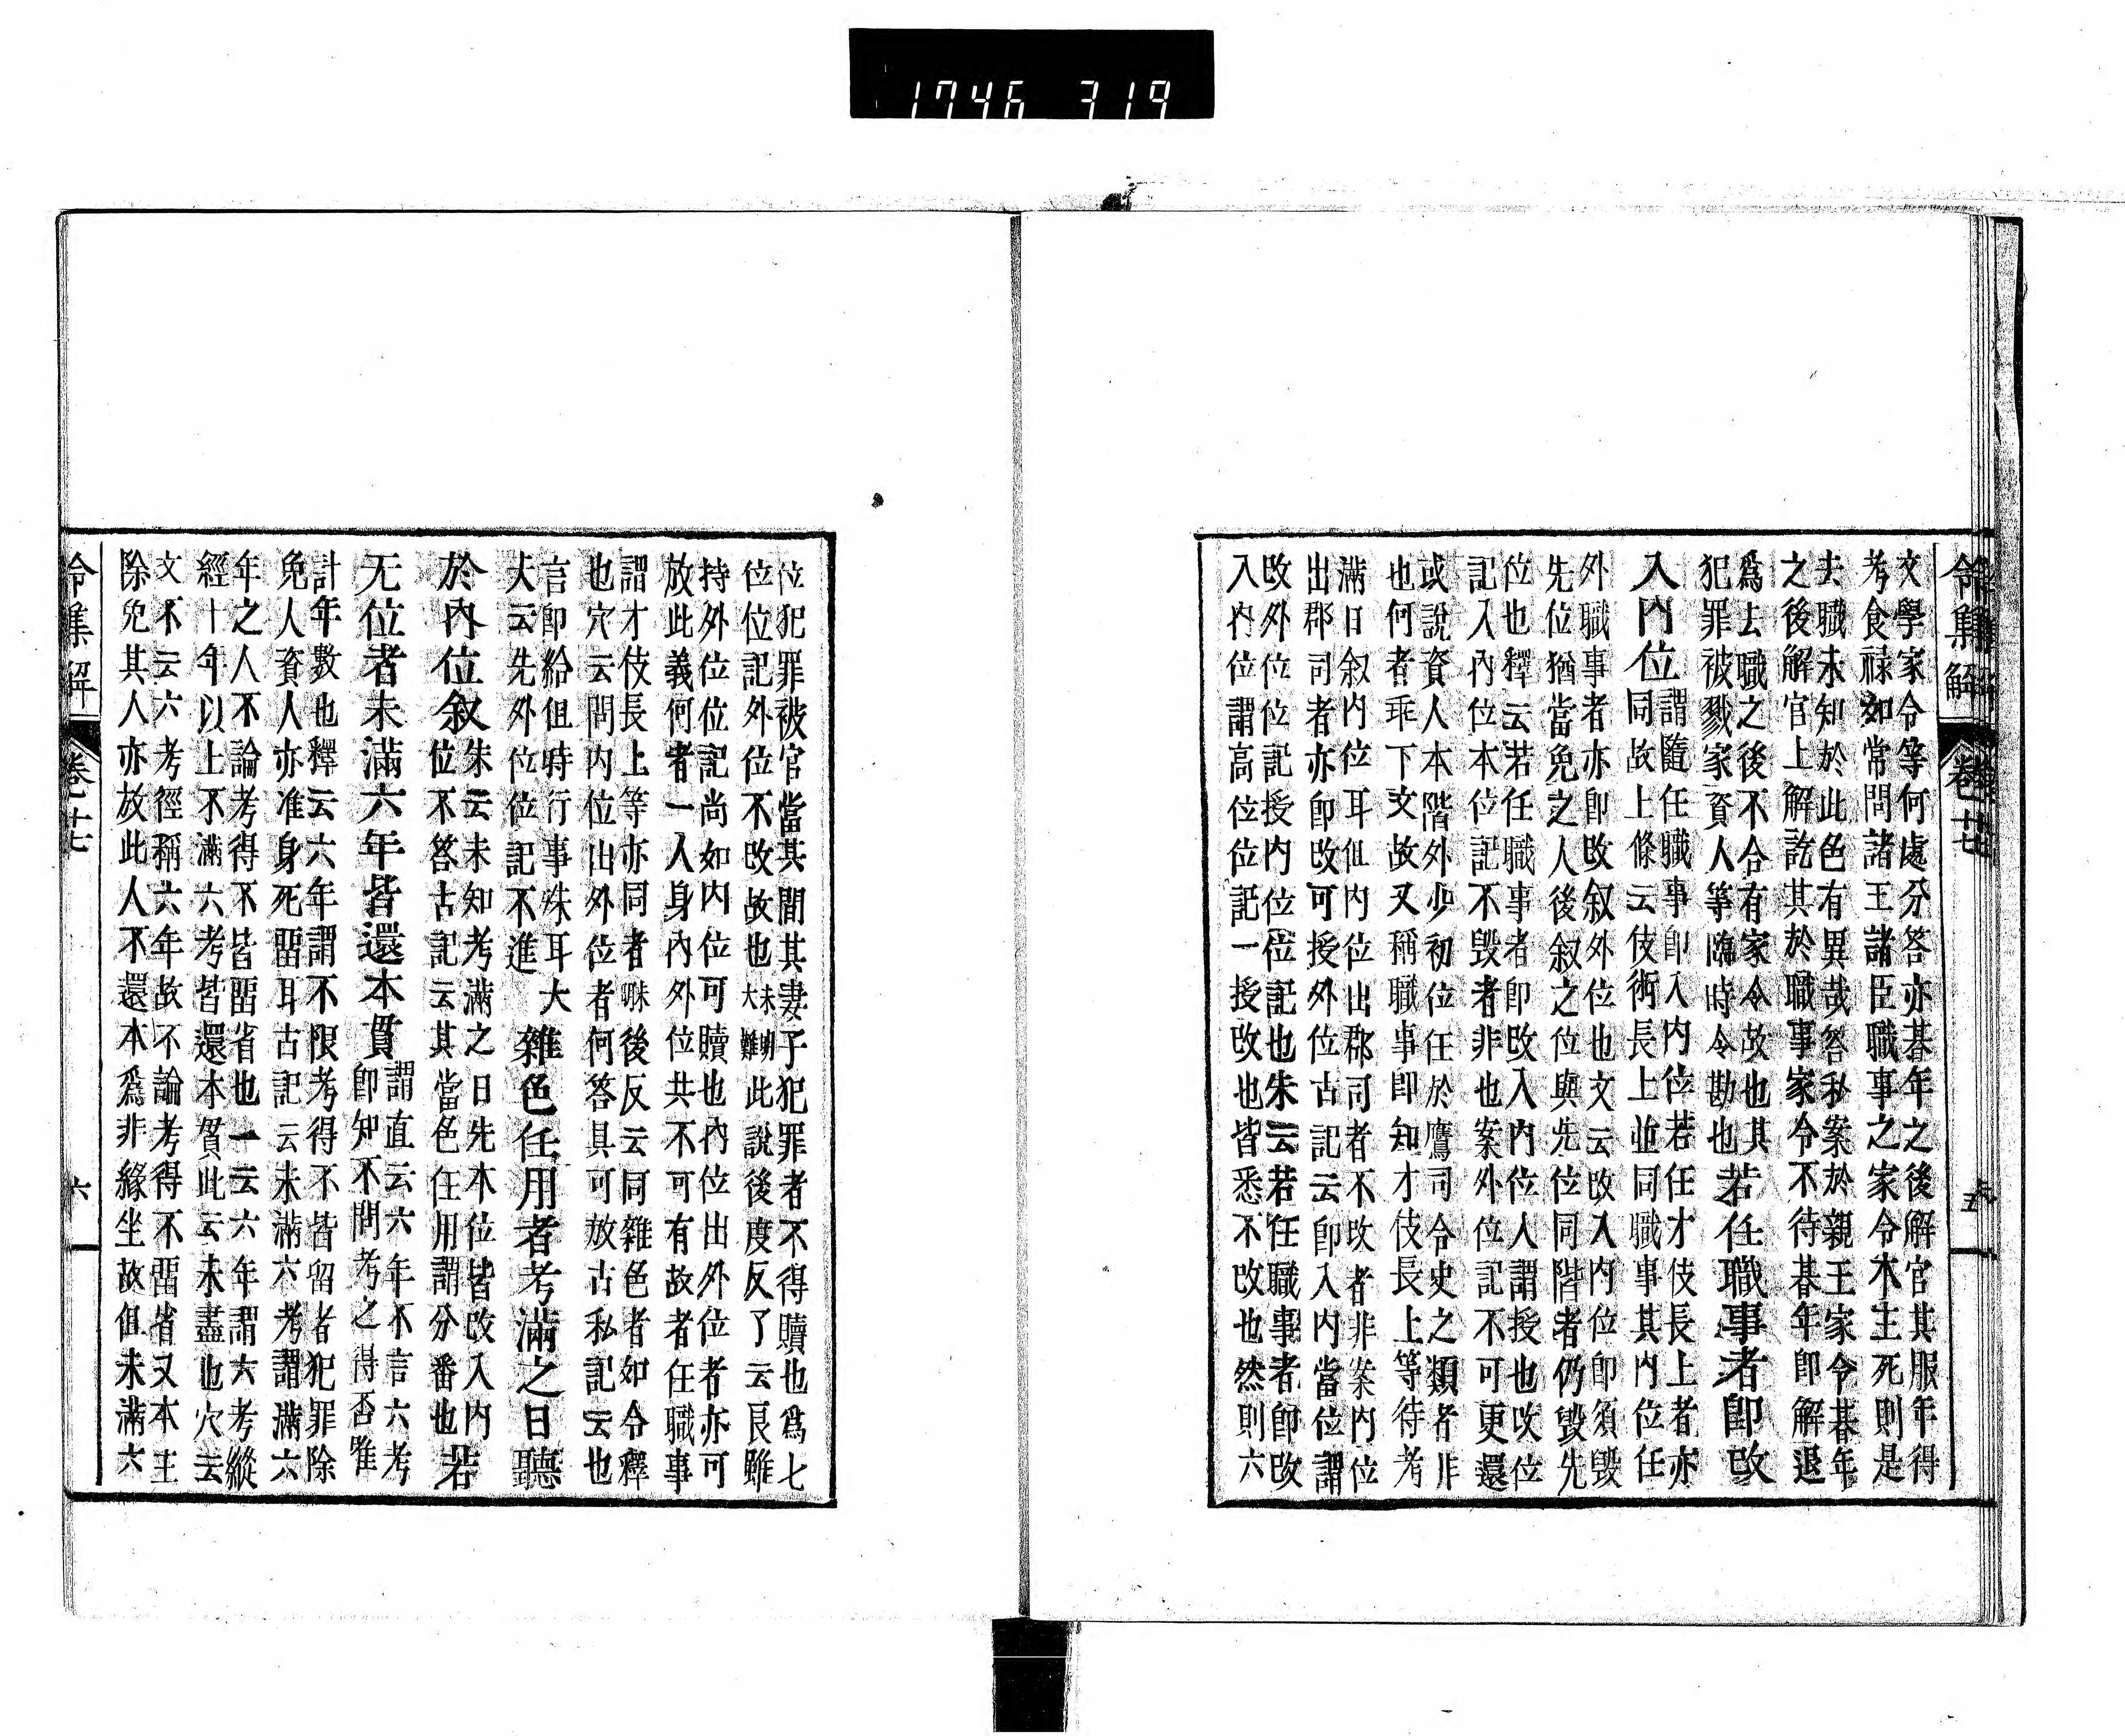 1746 319
令集解 卷十七 五
文學家令等何處分答亦朞年之後解官其服年得
考食祿如常問諸王諸臣職事之家令本主死則是
去職未知於此色有異哉答私案於親王家令朞年
之後解官上解訖其於職事家令不待朞年即解退
爲去職之後不合有家令故也其
犯罪被戮家資人等臨時令勘也
若任職事者即改
入內位
謂隨任職事即入內位若任才伎長上者亦
同故上條云伎術長上並同職事其內位任
外職事者亦即改叙外位也文云改入內位即須毀
先位猶當免之人後叙之位與先位同階者仍毀先
位也釋云若任職事者即改入內位人謂授也改位
記入內位本位記不毀者非也案外位記不可更還
或說資人本階外少初位任於鷹司令史之類者非
也何者乖下文故又稱職事即知才伎長上等待考
滿日叙內位耳但內位出郡司者不改者非案內位
出郡司者亦即改可授外位古記云即入內當位謂
改外位位記授內位位記也朱云若任職事者即改
入內位謂高位位記一授改也皆悉不改也然則六
位犯罪被官當其間其妻子犯罪者不得贖也爲七
位位記外位不改故也未明大難此說後度反了云良雖
持外位位記尚如內位可贖也內位出外位者亦可
放此義何者一人身內外位共不可有故者任職事
謂才伎長上等亦同者㖼後反云同雜色者如令釋
也穴云問內位出外位者何答具可放古私記云也
言即給但時行事殊耳大
夫云先外位位記不進
雜色任用者考滿之日聽
於內位叙
朱云未知考滿之日先本位皆改入內
位不答古記云其當色任用謂分番也
若
无位者未滿六年皆還本貫
謂直云六年不言六考
即知不問考之得否唯
計年數也釋云六年謂不限考得不皆留者犯罪除
免人資人亦准身死畱耳古記云未滿六考謂滿六
年之人不論考得不皆畱省也一云六年謂六考縱
經十年以上不滿六考皆還本貫此云未盡也穴云
文不云六考徑稱六年故不論考得不畱省又本主
除免其人亦放此人不還本爲非緣坐故但未滿六
令集解 卷十七 六